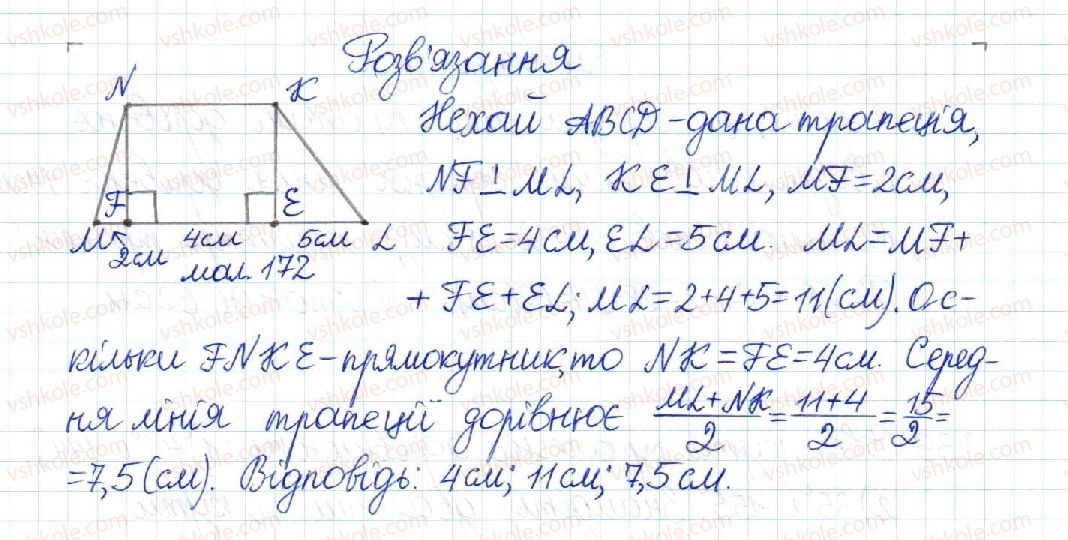 Розв'язання
N K
F E
M 4см 5см L
2см
мал. 172
Нехай ABCD - дана трапеція,
NF ⊥ ML, KE ⊥ ML, MF = 2см,
FE = 4см, EL = 5см. ML = MF +
+ FE + EL; ML = 2+4+5 = 11(см). Ос-
кільки FNKE - прямокутник, то NK = FE = 4см. Серед-
ня лінія трапеції дорівнює (ML + NK)/2 = (11+4)/2 = 15/2 =
= 7,5(см). Відповідь: 4см; 11см; 7,5см.